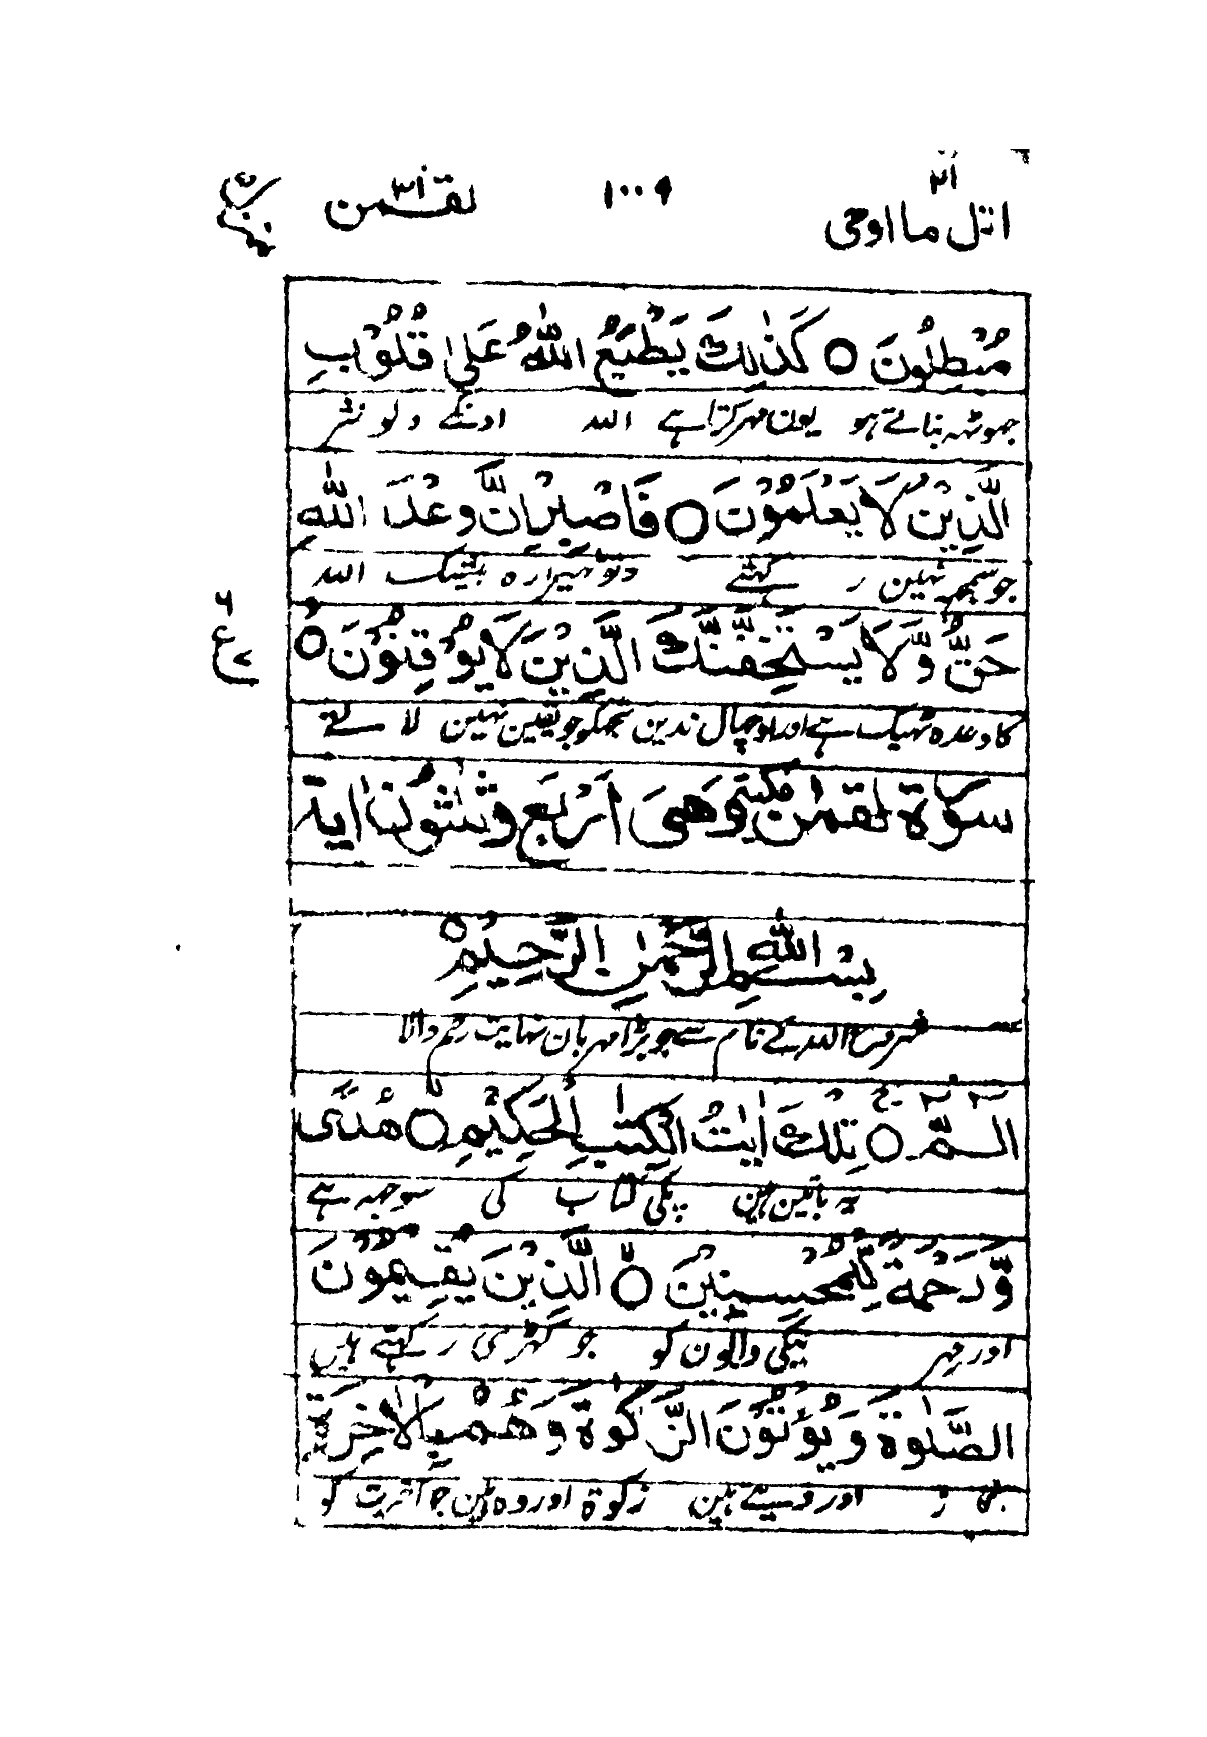 اتل ما اوحی ٢١ ١٠٠٩ لقمن ٣١
مُبْطِلُوْنَ ○ كَذٰلِكَ يَطْبَعُ اللّٰهُ عَلٰى قُلُوْبِ
جھوٹھہ بناتے ہو یون مہر کرتا ہے اللہ اونکے دلو نپر
الَّذِيْنَ لَا يَعْلَمُوْنَ ○ فَاصْبِرْ اِنَّ وَعْدَ اللّٰهِ
جو سمجھ نہین ر کہتے تو ٹہیرا رہ بیشک اللہ
حَقٌّ وَّلَا يَسْتَخِفَّنَّكَ الَّذِيْنَ لَا يُوْقِنُوْنَ ○
کا وعدہ ٹہیک ہے اور اوچہال ندین تجھکو جو یقین نہین لا تے
٦ ع
سورة لقمٰن مكية وهى اربع وثلثون اٰية
بِسْمِ اللّٰهِ الرَّحْمٰنِ الرَّحِيْمِ ○
شروع اللہ کے نام سے جو بڑا مہربان نہایت رحم والا
الٓـمّٓ ○ تِلْكَ اٰيٰتُ الْكِتٰبِ الْحَكِيْمِ ○ هُدًى
یہ باتین ہین پکی کتا ب کی سوجہہ ہے
وَّرَحْمَةً لِّلْمُحْسِنِيْنَ ○ الَّذِيْنَ يُقِيْمُوْنَ
اور مہر نیکی والون کو جو کھڑی ر کہتے ہین
الصَّلٰوةَ وَيُؤْتُوْنَ الزَّكٰوةَ وَهُمْ بِالْاٰخِرَةِ
اور دیتے ہین زکوة اور وہ ہین جو آخرت کو